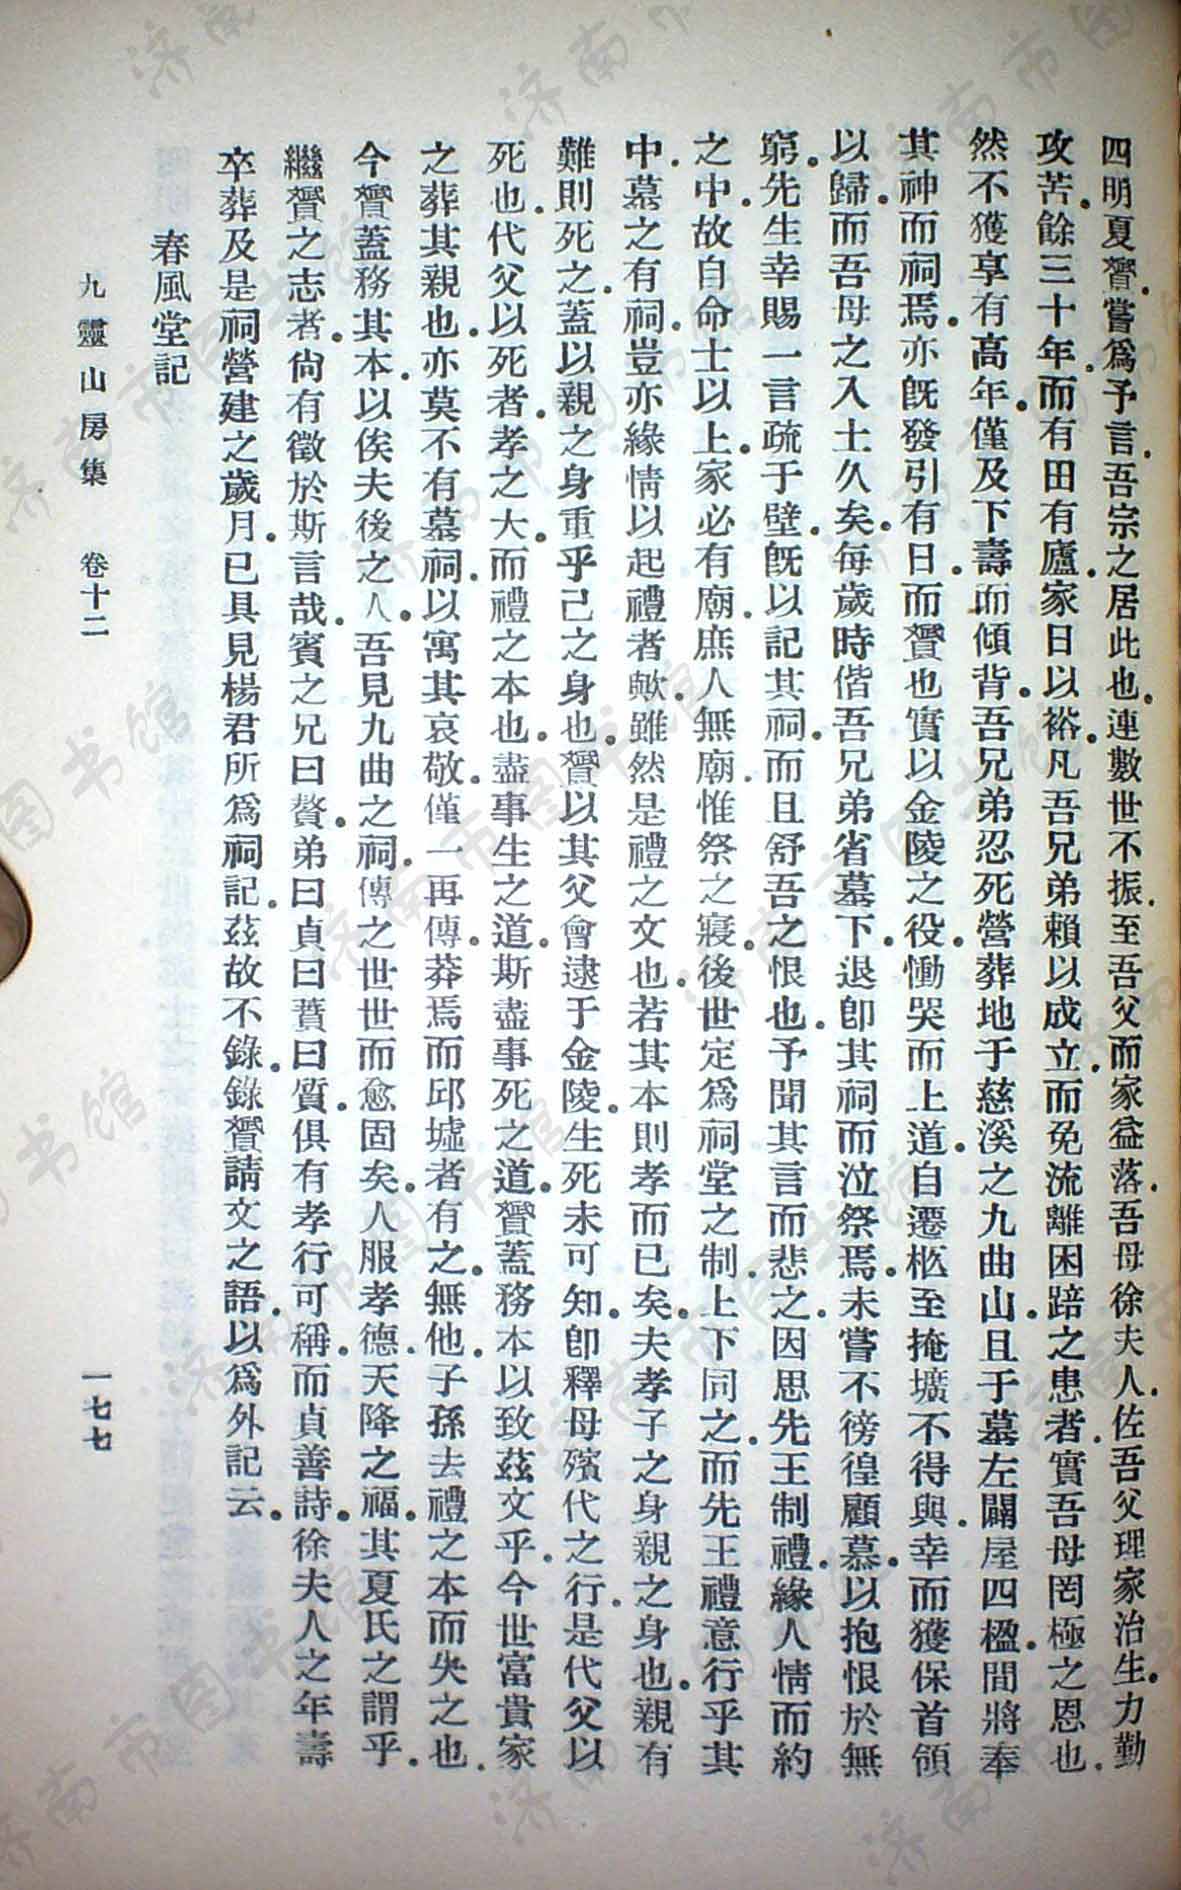 四明夏贇嘗爲予言.吾宗之居此也.連數世不振.至吾父而家益落.吾母徐夫人.佐吾父理家治生.力勤
攻苦.餘三十年.而有田有廬.家日以裕.凡吾兄弟賴以成立.而免流離困踣之患者.實吾母罔極之恩也.
然不獲享有高年.僅及下壽而傾背.吾兄弟忍死營葬地于慈溪之九曲山.且于墓左闢屋四楹.間將奉
其神而祠焉.亦旣發引有日.而贇也實以金陵之役.慟哭而上道.自遷柩至掩壙不得與.幸而獲保首領
以歸.而吾母之入土久矣.每歲時偕吾兄弟省墓下.退卽其祠而泣祭焉.未嘗不徬徨顧慕.以抱恨於無
窮.先生幸賜一言疏于壁.旣以記其祠.而且舒吾之恨也.予聞其言而悲之.因思先王制禮.緣人情而約
之中.故自命士以上.家必有廟.庶人無廟.惟祭之寢.後世定爲祠堂之制.上下同之.而先王禮意行乎其
中.墓之有祠.豈亦緣情以起禮者歟.雖然是禮之文也.若其本則孝而已矣.夫孝子之身.親之身也.親有
難則死之.蓋以親之身重乎己之身也.贇以其父會逮于金陵.生死未可知.卽釋母殯代之行.是代父以
死也.代父以死者.孝之大.而禮之本也.盡事生之道.斯盡事死之道.贇蓋務本以致茲文乎.今世富貴家
之葬其親也.亦莫不有墓祠.以寓其哀敬.僅一再傳.莽焉而邱墟者有之.無他.子孫去禮之本而失之也.
今贇蓋務其本.以俟夫後之人.吾見九曲之祠.傳之世世而愈固矣.人服孝德.天降之福.其夏氏之謂乎.
繼贇之志者.尙有徵於斯言哉.賓之兄曰贅.弟曰貞曰蕡曰質.俱有孝行可稱.而貞善詩.徐夫人之年壽
卒葬及是祠營建之歲月.已具見楊君所爲祠記.茲故不錄.錄贇請文之語.以爲外記云.
春風堂記
九靈山房集 卷十二 一七七